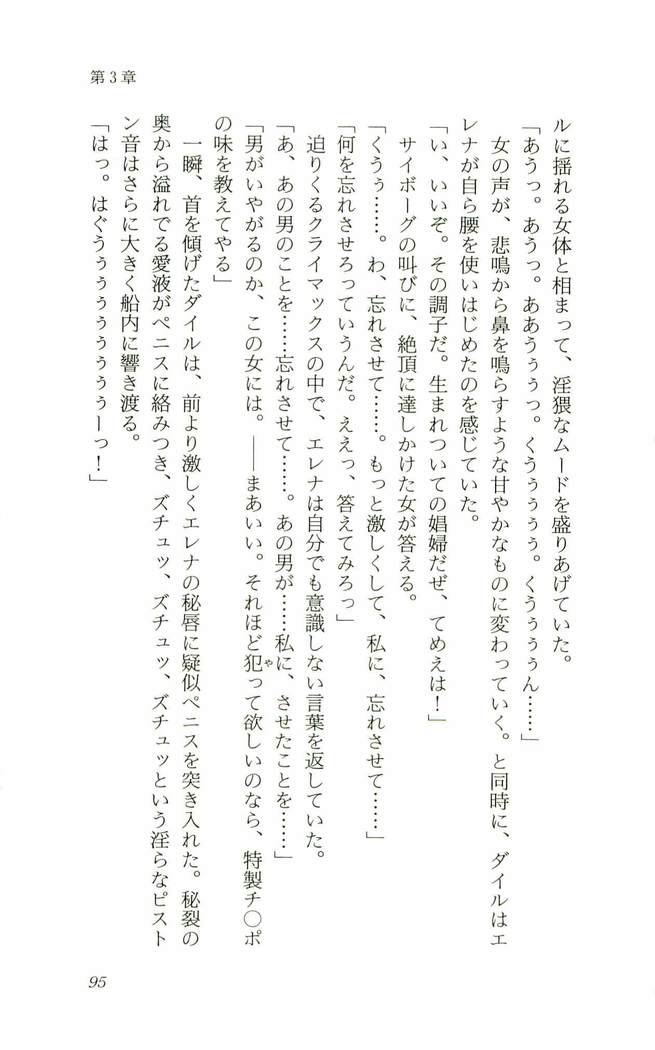 第3章
ルに揺れる女体と相まって、淫猥なムードを盛りあげていた。
「あうっ。あうっ。ああうぅぅっ。くうぅぅぅぅ。くうぅぅぅん……」
女の声が、悲鳴から鼻を鳴らすような甘やかなものに変わっていく。と同時に、ダイルはエ
レナが自ら腰を使いはじめたのを感じていた。
「い、いいぞ。その調子だ。生まれついての娼婦だぜ、てめえは！」
サイボーグの叫びに、絶頂に達しかけた女が答える。
「くうぅ……。わ、忘れさせて……。もっと激しくして、私に、忘れさせて……」
「何を忘れさせろっていうんだ。ええっ、答えてみろっ」
迫りくるクライマックスの中で、エレナは自分でも意識しない言葉を返していた。
「あ、あの男のことを……忘れさせて……。あの男が……私に、させたことを……」
「男がいやがるのか、この女には。――まあいい。それほど犯って欲しいのなら、特製チ〇ポ
の味を教えてやる」
一瞬、首を傾げたダイルは、前より激しくエレナの秘唇に疑似ペニスを突き入れた。秘裂の
奥から溢れでる愛液がペニスに絡みつき、ズチュッ、ズチュッ、ズチュッという淫らなピスト
ン音はさらに大きく船内に響き渡る。
「はっ。はぐうぅぅぅぅぅぅぅーっ！」
95